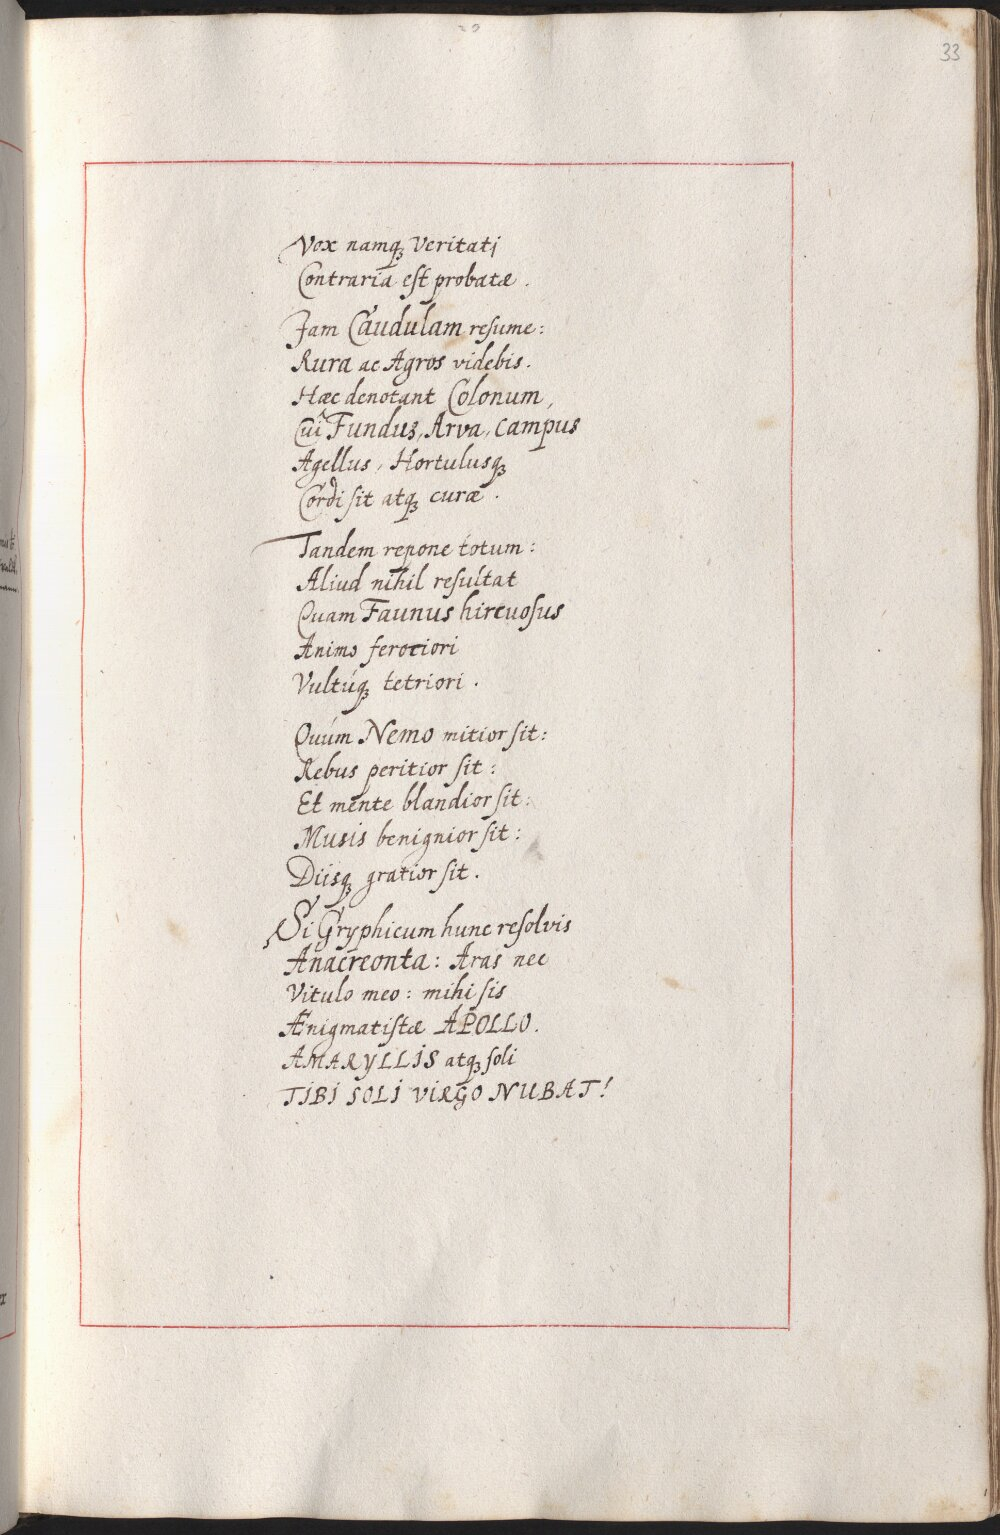 33
Vox namq; Veritatj
Contraria est probatæ.
Jam Caudulam resume:
Rura ac Agros videbis.
Hæc denotant Colonum,
Cuî Fundus, Arva, Campus
Agellus, Hortulusq;
Cordi sit atq; curæ.
Tandem repone totum:
Aliud nihil resultat
Quam Faunus hircuosus
Animo ferociori
Vultúq; tetriori.
Quúm Nemo mitior sit:
Rebus peritior sit:
Et mente blandior sit:
Musis benignior sit:
Diisq; gratior sit.
Si Gryphicum hunc resolvis
Anacreonta: Aras nec
Vitulo meo: mihi sis
Ænigmatistæ APOLLO.
AMARYLLIS atq; soli
TIBI SOLI VIRGO NUBAT!